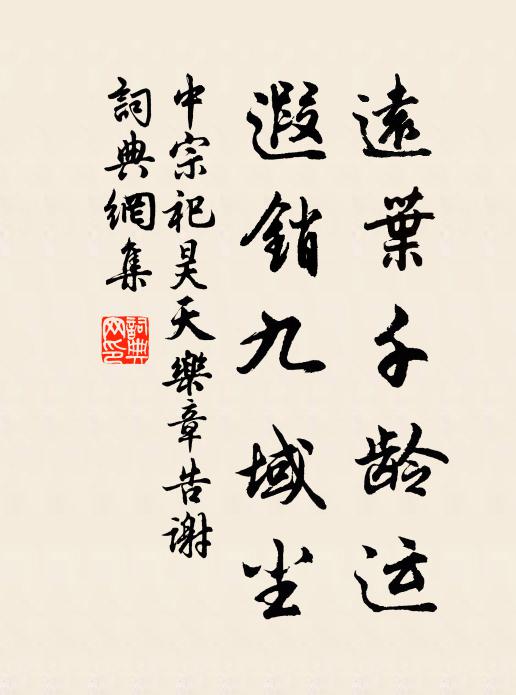 遠葉千龄运
遐銷九域尘
中宗祀昊天樂章告谢
詞典網集
詞典网印